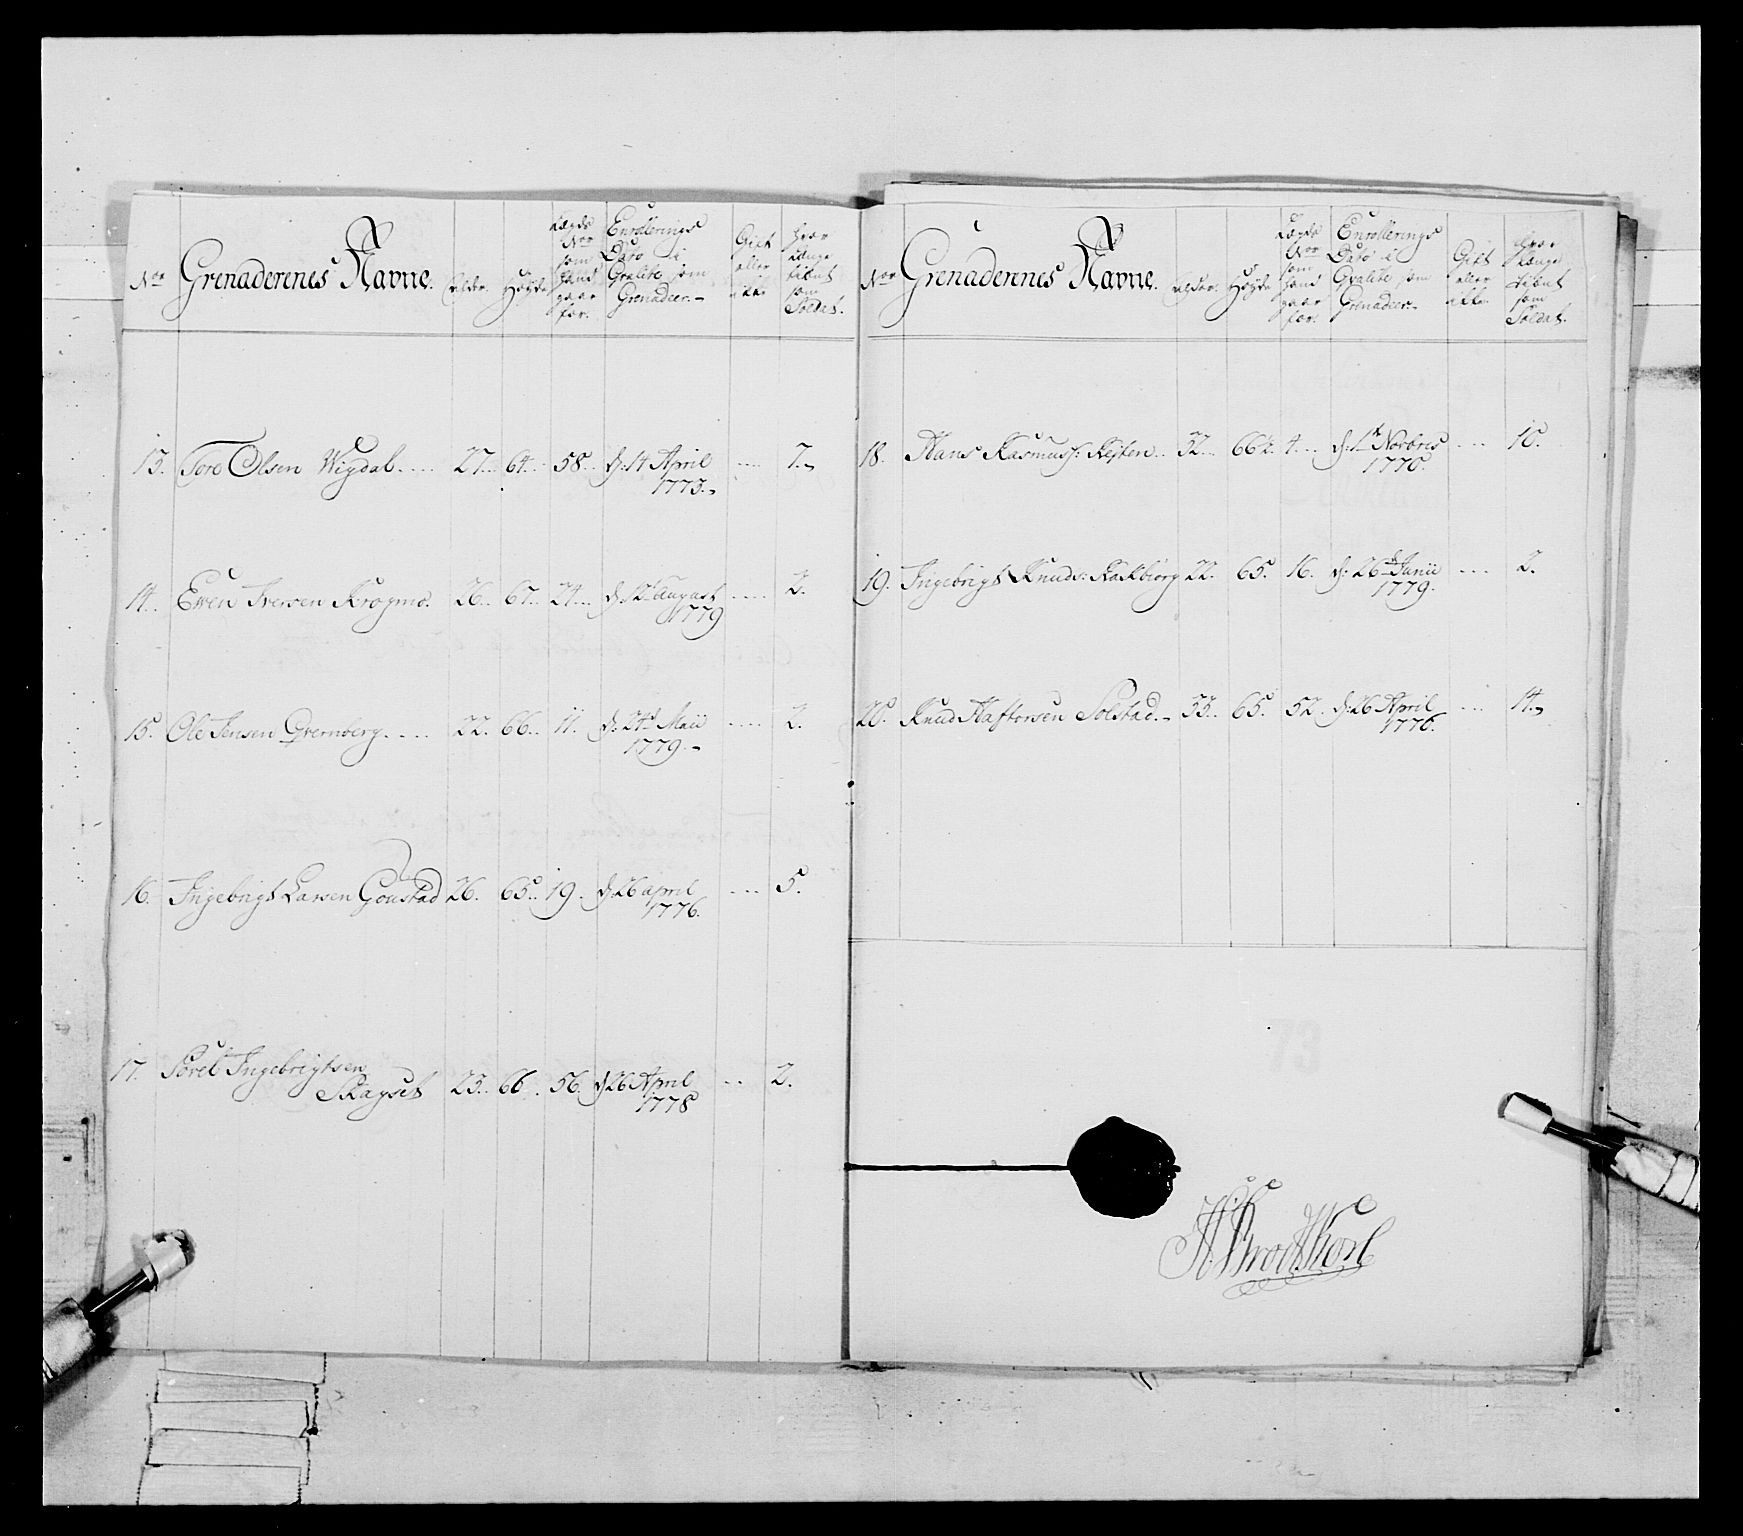 Nor Grenaderenes Navne. Alder. Høyde Lægds Nor som hand gaar for. Enrollerings Dato i Qvalite som Grenadeer. Gift eller ikke Hvor Længe tiënt som Soldat.
13. Tore Olsen Wigdal..... 27.. 64.. 58.. d: 14 April ..... 7.
1773.
14. Even Iversen Krogmo. 26.. 67.. 24... d: 12t August ..... 2.
1779
15. Ole Jensen Qvernberg..... 22. 66.. 11. d: 24d Maii ..... 2.
1779.
16. Ingebrigt Larsen Goustad 26. 65.. 19. d: 26 april .... 5.
1776.
17. Sorel Ingebrigtsen
Skagset 23.. 66.. 56. d: 26 April .. 2.
1778
Nor Grenaderenes Navne. Alder. Høyde Lægds Nor som hand gaar for. Enrollerings Dato i Qvalite som Grenadeer. Gift eller ikke Hvor Længe tiënt som Soldat.
18. Hans Rasmus: 32... 66½. 4.... d: 1t Novbris .... 10.
1770.
19. Ingebrigt Knuds: 22. 65. 16. d: 26d Junii .... 2.
1779.
20. Knud Haftorsen Solstad. 33.. 65. 52. d: 26 April ... 14.
1776.